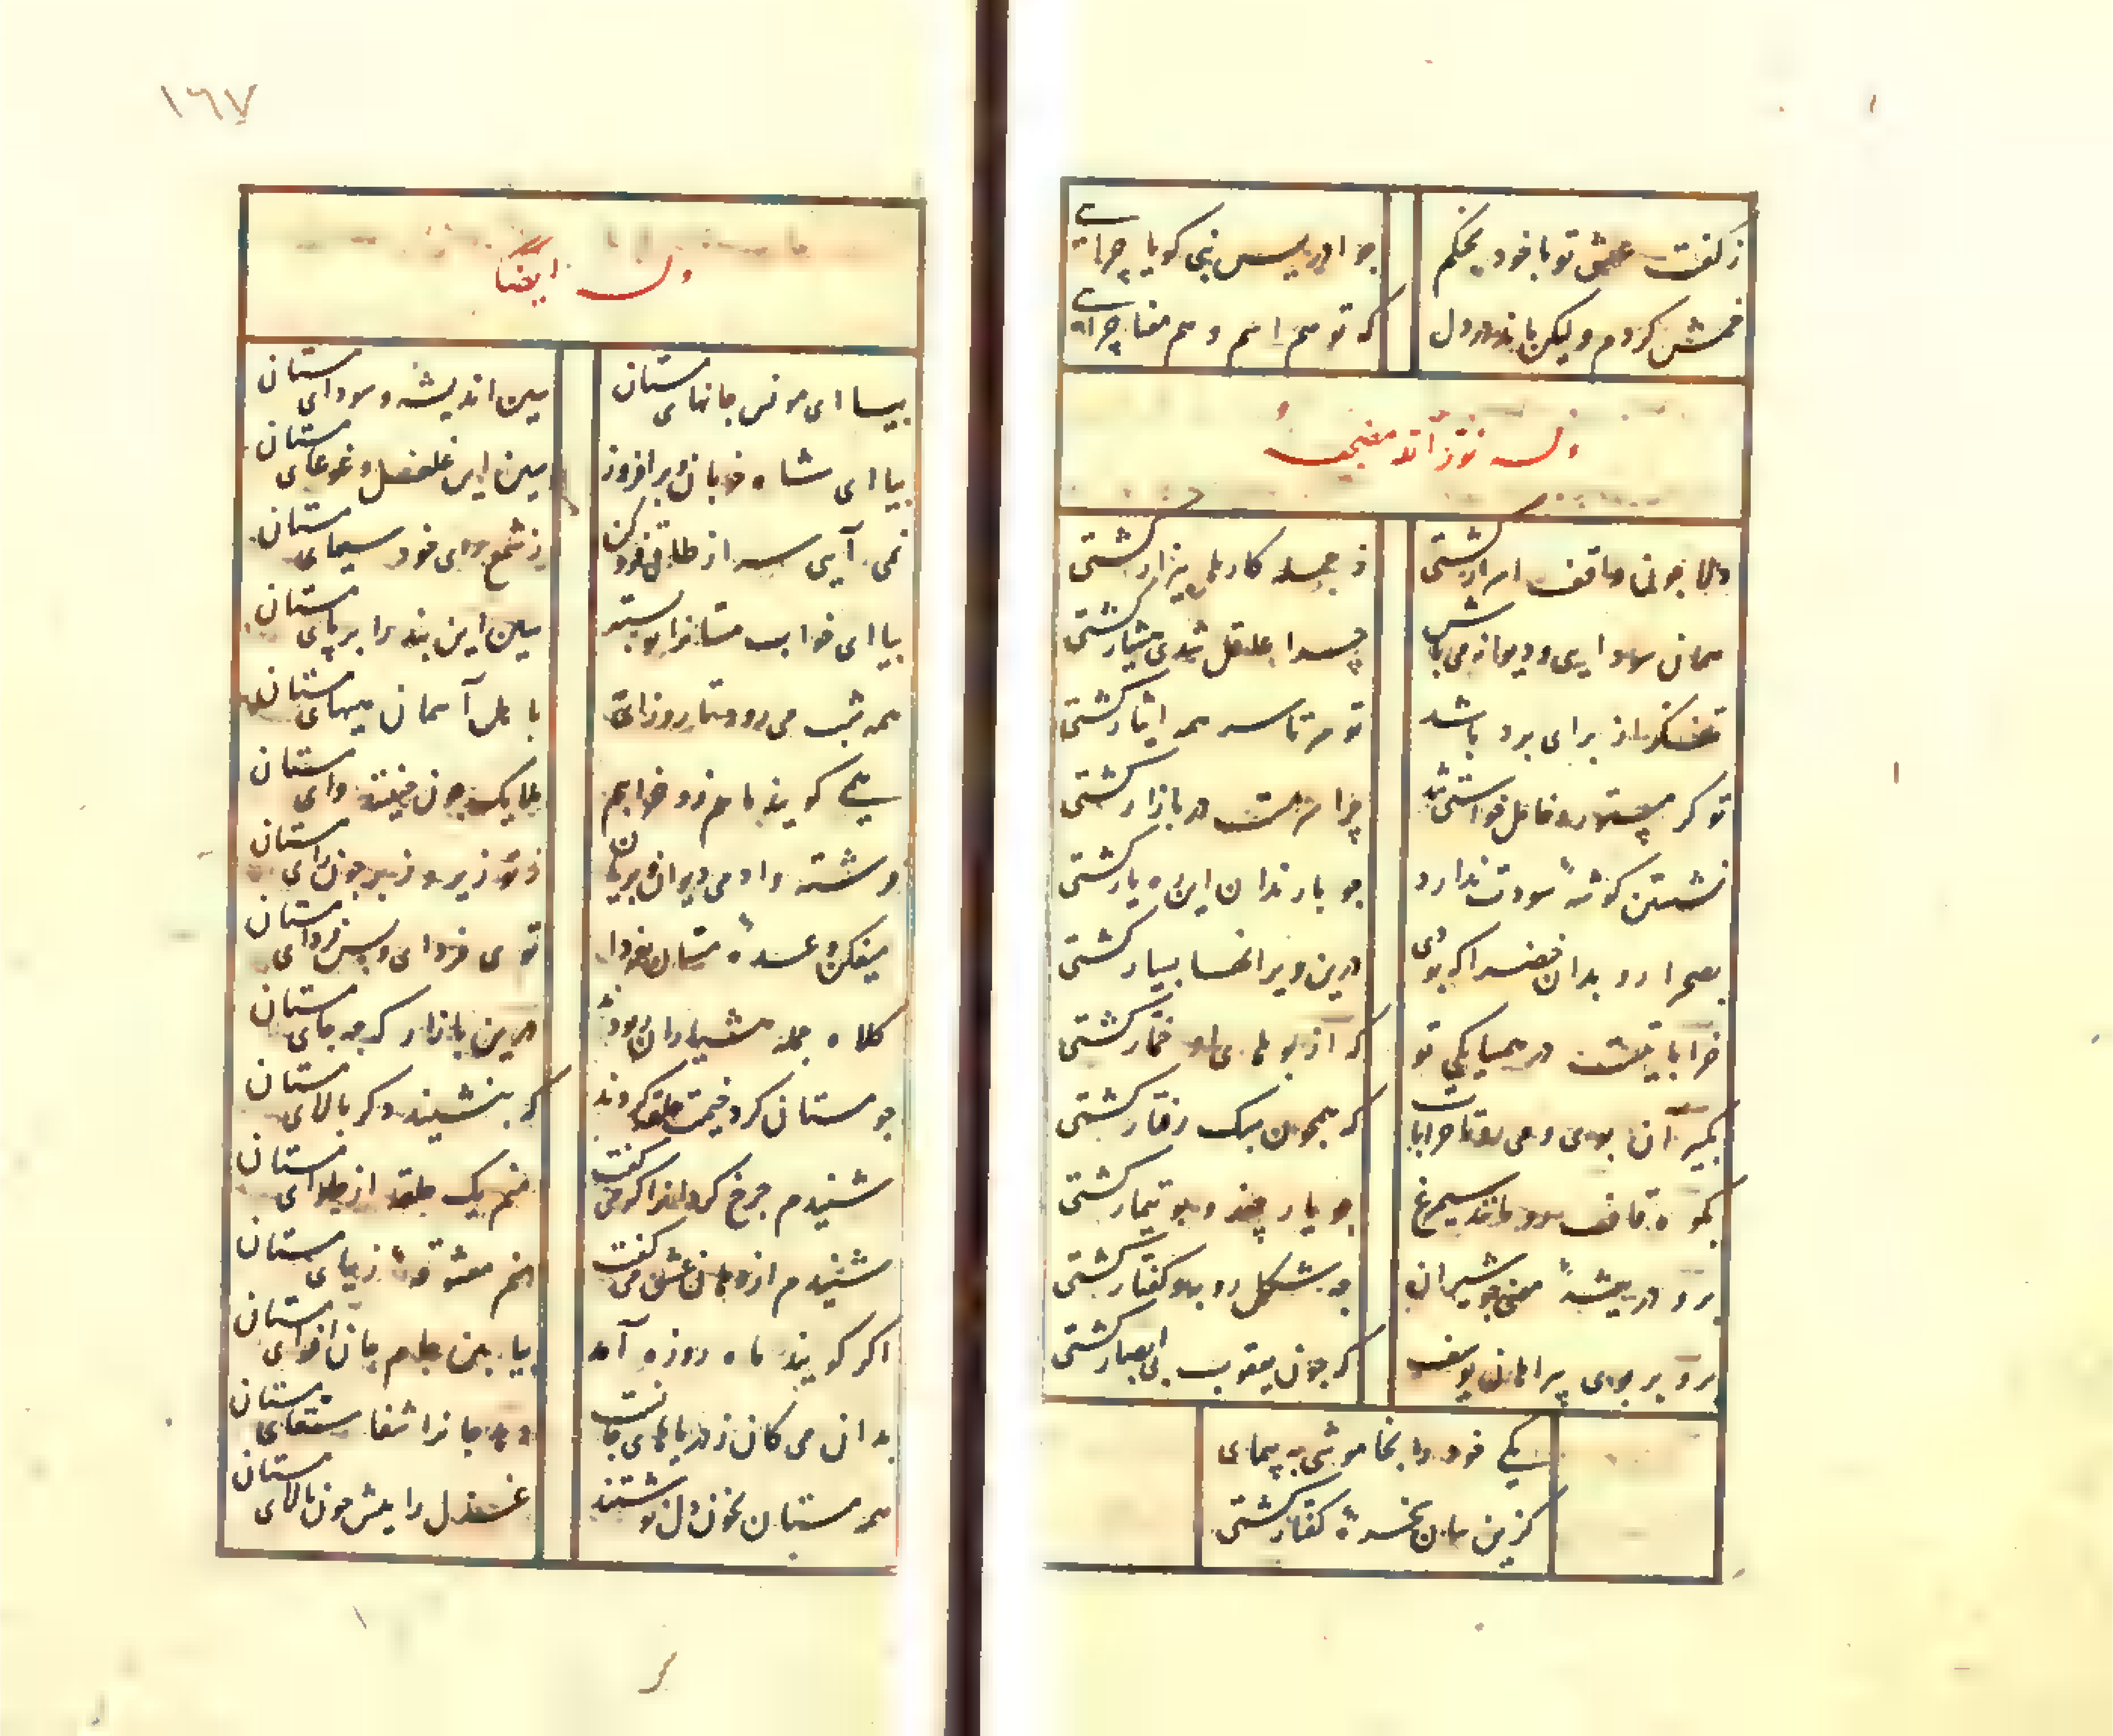 ز گفت عشق تو با خود بحکم
چو ادریس نبی کویا چراست
خمش کردم ولیکن باز در دل
که تو هم اسم و هم معنا چراست
وله نور الله مضجعه
دلا چونی واقف اسرار کشتی
ز جمله کارها بیزار کشتی
همان سودایی و دیوانه می باش
چرا عاقل شدی هشیار کشتی
تفکر از برای برد باشد
تو سرتاسر همه ایثار کشتی
چرا سرمست در بازار کشتی
نشستن کوشهٔ سودت ندارد
چو با رندان این ره یار کشتی
بصحرا رو بدان صحرا که بودی
درین ویرانها بسیار کشتی
خراباتیست در همسایکی تو
که از بوهای می خمار کشتی
بکیر آن بوی و می رو تا خرابات
که همچون سبک رفتار کشتی
بکوه قاف رو مانند سیمرغ
چو یار چغد و بوتیمار کشتی
برو در بیشهٔ معنی چو شیران
چه شکل روبه و کفتار کشتی
برو بر بوی پیراهان یوسف
که چون یعقوب
یکی خود را بخاموشی بپیمای
کشتی
۱۶۷
وله ایضا
بیا ای مونس جانهای مستان
ببین اندیشه و سودای مستان
بیا ای شاه خوبان و برافروز
ببین این غلغل و غوغای مستان
نمی آیی سر از طاقی فرو کن
ز شمع روی خود سیمای مستان
بیا ای خواب مستان را ببسته
ببین این بند را بر پای مستان
همه شب می رود تا روز ای
باهل آسمان هیهای مستان
همی کویند ما هم زو خرابیم
ملایک چون چنینند وای مستان
فرشته و آدمی دیوان و پریان
ز تو زیر و زبر چون رای مستان
میفکن وعدهٔ مستان بفردا
توی فردا و پس فردای مستان
کلاه جمله هشیاران ربودند
درین بازار کو چه جای مستان
چو مستان کرد خیمت حلقه کردند
که بنشیند دکر بالای مستان
شنیدم چرخ کردان را که می کفت
منم یک حلقه از حلوای مستان
شنیدم از دهان عشق می کفت
منم معشوقهٔ زیبای مستان
اکر کویند ماه روزه آمد
بیا ببین جام جان افزای مستان
بدان می کان ز دریاهای جانست
دهد جانرا شفا سقای مستان
همه مستان بخون دل نوشتند
غزل را بالای مستان